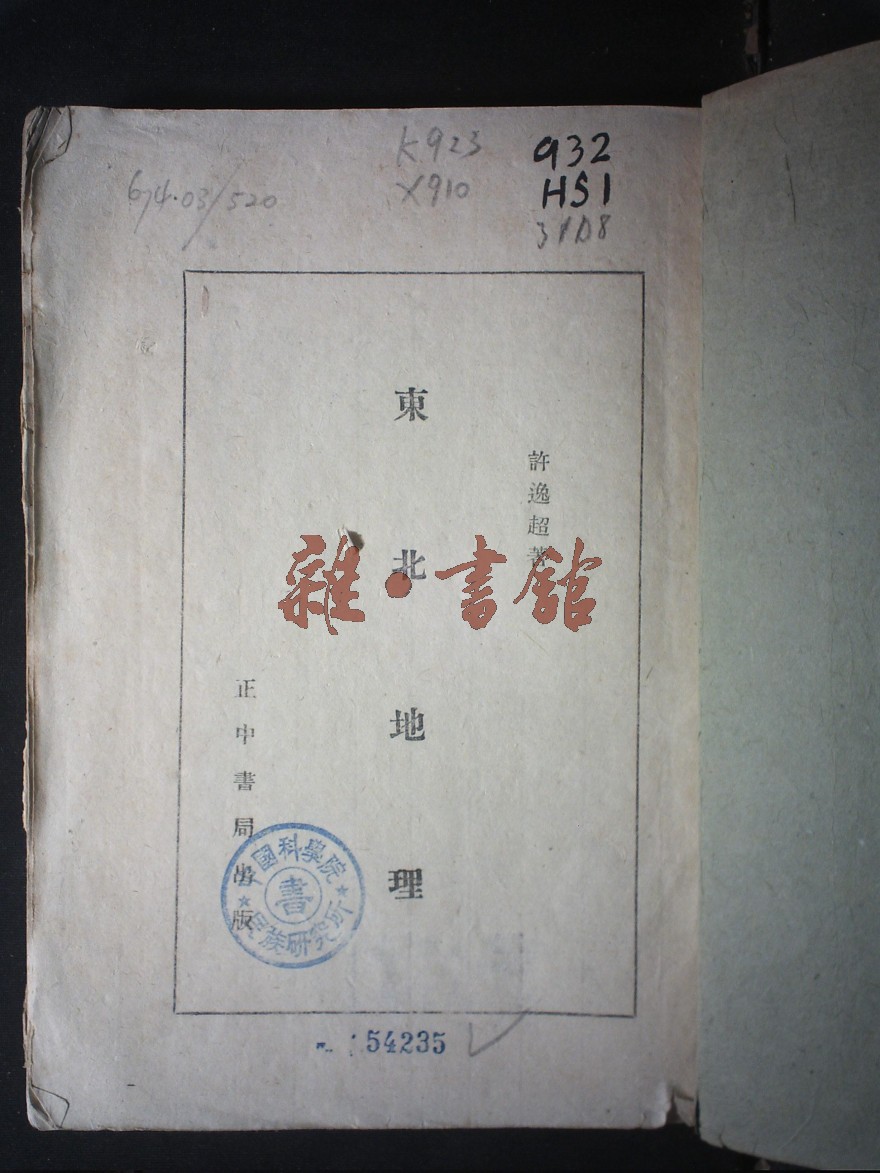 K923
X910
932
HS1
674.03/520
許逸超著
東北地理
正中書局出版
雜·書館
中國科學院
書
民族研究所
54235